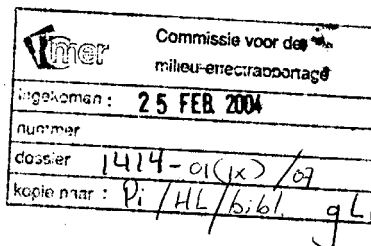 mer
Commissie voor de
milieu-effectrapportage
ingekomen : 25 FEB. 2004
nummer
dossier 1414-01(jx) /07
kopie naar : Pi / HL / bibl.